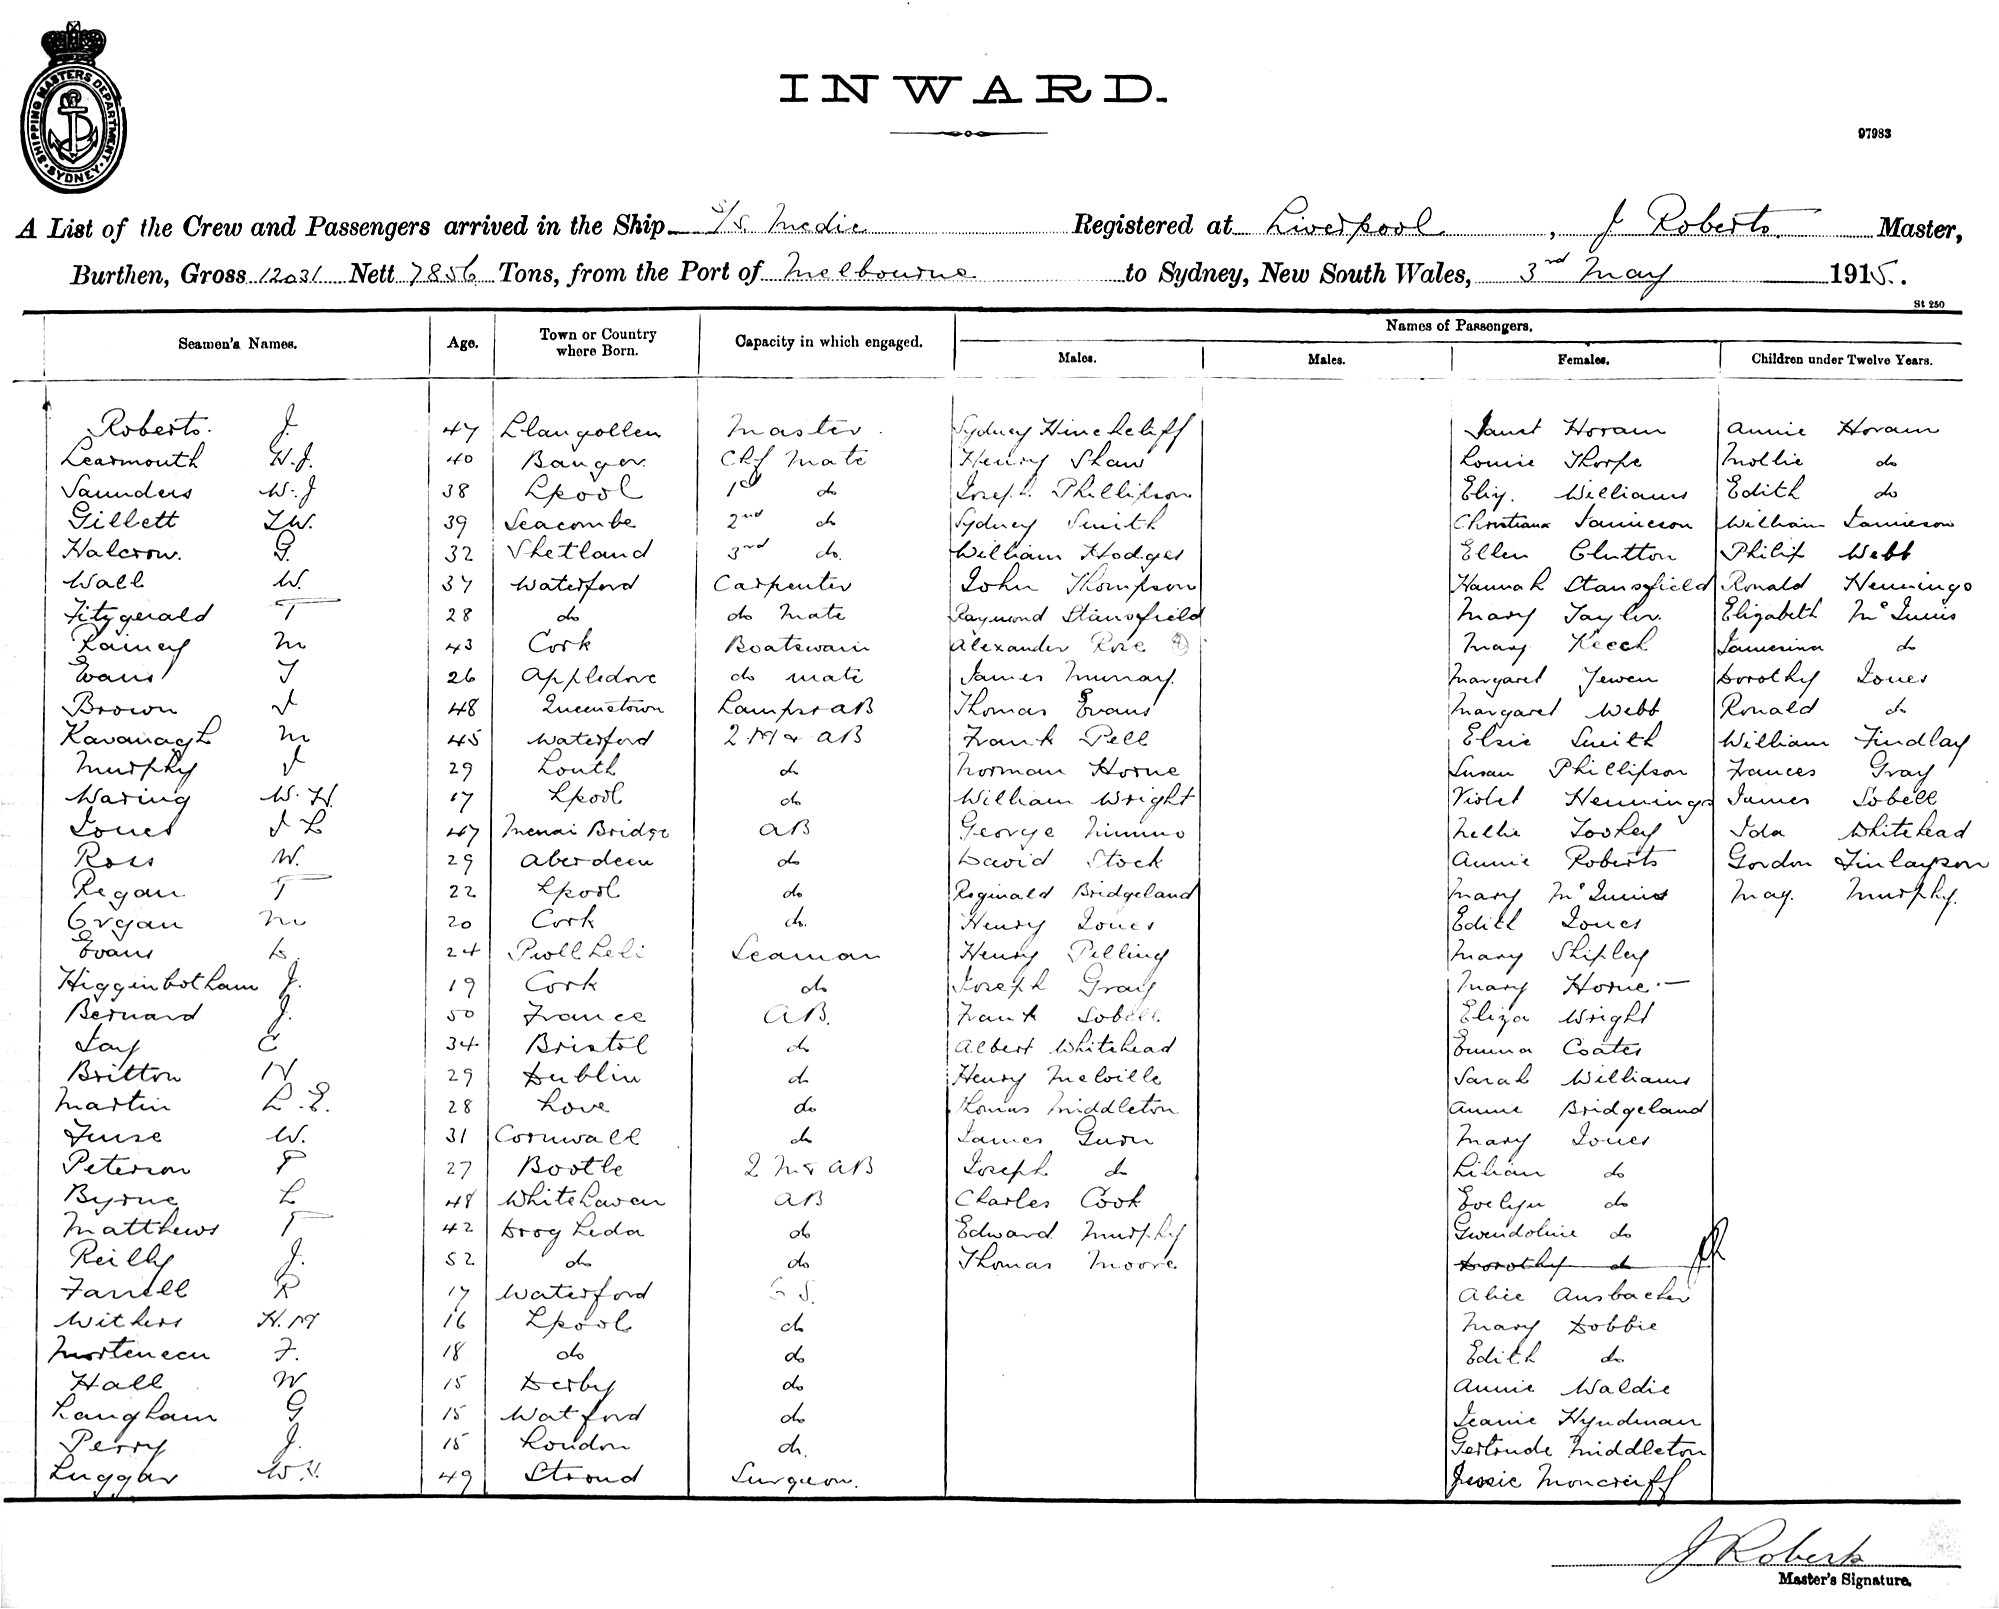 SHIPPING MASTERS DEPARTMENT. SYDNEY
INWARD.
97983
A List of the Crew and Passengers arrived in the Ship S/S. Medic Registered at Liverpool, J Roberts. Master,
Burthen, Gross 12031 Nett 7856 Tons, from the Port of Melbourne to Sydney, New South Wales, 3rd May 1915.
St 250
Seamen's Names. Age. Town or Country where Born. Capacity in which engaged. Names of Passengers.
Males. Males. Females. Children under Twelve Years.
Roberts. J. 47 Llangollen Master. Sydney Hinchcliff Janet Horam Annie Horam
Learmouth W.J. 40 Bangor. Chf Mate Henry Shaw Louie Thorpe Mollie do
Saunders W.J 38 Lpool 1st do Joseph Phillipson Eliz. Williams Edith do
Gillett T.W. 39 Seacombe 2nd do Sydney Smith Christiana Jamieson William Jamieson
Halcrow. G. 32 Shetland 3rd do. William Hodges Ellen Clutton Philip Webb
Wall W. 37 Waterford Carpenter John Thompson Hannah Stansfield Ronald Hennings
Fitzgerald T 28 do do Mate Raymond Stansfield Mary Taylor. Elizabeth McInnis
Rainey M 43 Cork Boatswain Alexander Rose Mary Keech Jamesina do
Evans J 26 Appledore do mate James Murray. Margaret Yewen Dorothy Jones
Brown J 48 Queenstown Lamps & AB Thomas Evans Margaret Webb Ronald do
Kavanagh M 45 Waterford 2 M & AB Frank Pell Elsie Smith William Findlay
Murphy J 29 Louth do Norman Horne Susan Phillipson Frances Gray
Waring W.H. 17 Lpool do William Wright Violet Hennings James Sobell
Jones J L 47 Menai Bridge AB George Nimmo Nellie Tookey Ida Whitehead
Ross W. 29 Aberdeen do David Stock Annie Roberts Gordon Finlayson
Regan T 22 Lpool do Reginald Bridgeland Mary McInnis May. Murphy.
Organ M 20 Cork do. Henry Jones Edith Jones
Evans L. 24 Pwllheli Seaman Henry Pelling Mary Shipley
Higginbotham J. 19 Cork do Joseph Gray Mary Horne.—
Bernard J. 50 France AB. Frank Sobell Eliza Wright
Jay C 34 Bristol do Albert Whitehead Emma Coates
Britton N 29 Dublin do Henry Melville Sarah Williams
Martin L.E. 28 Love do Thomas Middleton Annie Bridgeland
Furse W. 31 Cornwall do James Gunn Mary Jones
Peterson T 27 Bootle 2 M & AB Joseph do Lilian do
Byrne L 48 Whitehaven AB Charles Cook Evelyn do
Matthews T 42 Drogheda do Edward Murphy Gwendoline do
Reilly J. 52 do do Thomas Moore Dorothy do
Farrell R 17 Waterford S. Alice Ansbacher
Withers H.M 16 Lpool do Mary Dobbie
Mortensen F. 18 do do Edith do
Hall W 15 Derby do Annie Waldie
Langham G 15 Watford do Jeanie Hyndman
Perry J. 15 London do. Gertrude Middleton
Luggar 49 Stroud Surgeon. Jessie Moncrieff
J Roberts
Master's Signature.